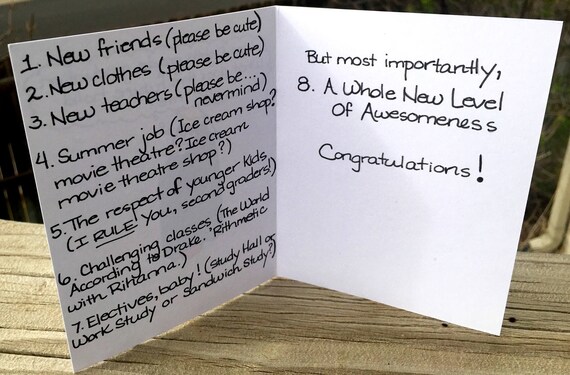 1. New friends (please be cute)
2. New clothes (please be cute)
3. New teachers (please be...
nevermind)
4. Summer job (Ice cream shop?
movie theatre? Ice cream
movie theatre shop?)
5. The respect of younger kids
(I RULE you, second graders!)
6. Challenging classes (The World
According to Drake. 'Rithmetic
with Rihanna.)
7. Electives, baby! (Study Hall or
Work Study or Sandwich Study?)
But most importantly,
8. A Whole New Level
of Awesomeness
Congratulations!